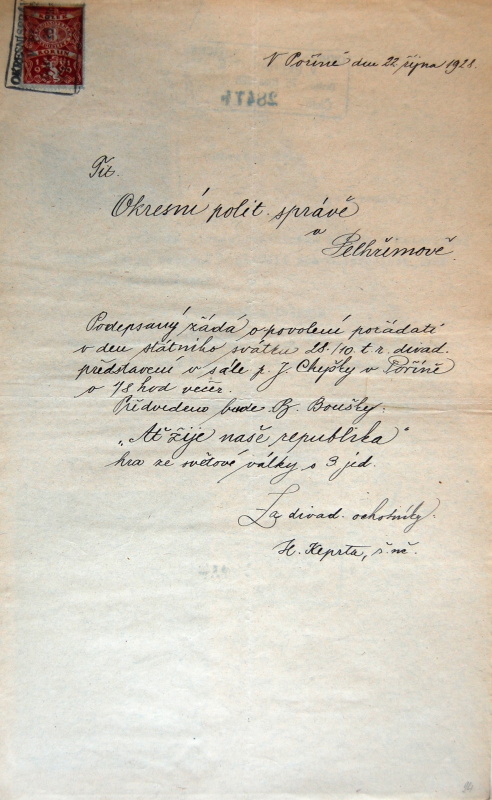 V Poříně dne 22 října 1928.
28471
Tit.
Okresní polit. správě
v
Pelhřimově.
Podepsaný žádá o povolení pořádati
v den státního svátku 28./10. t. r. divad.
představení v sále p. J. v Poříně
o ½8 hod večer.
Předvedeno bude Boušky:
„Ať žije naše republika“
hra ze světové války o 3 jed.
Za divad. ochotníky.
H. Keprta, ř. uč.